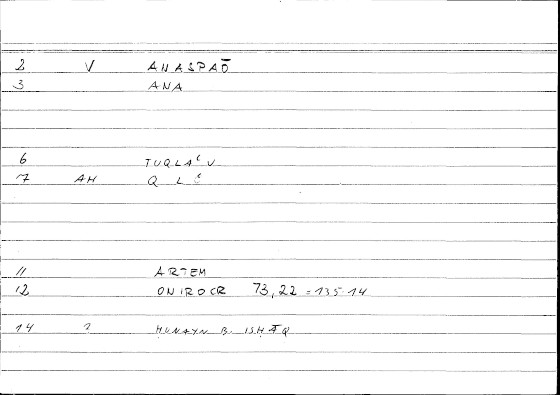 2 V ANASPAŌ
3 ANA
6 TUQLAʿ U
7 AH Q L ʿ
11 ARTEM
12 ONIROCR 73,22 = 135.14
14 ? ḤUNAYN B. ISḤĀQ